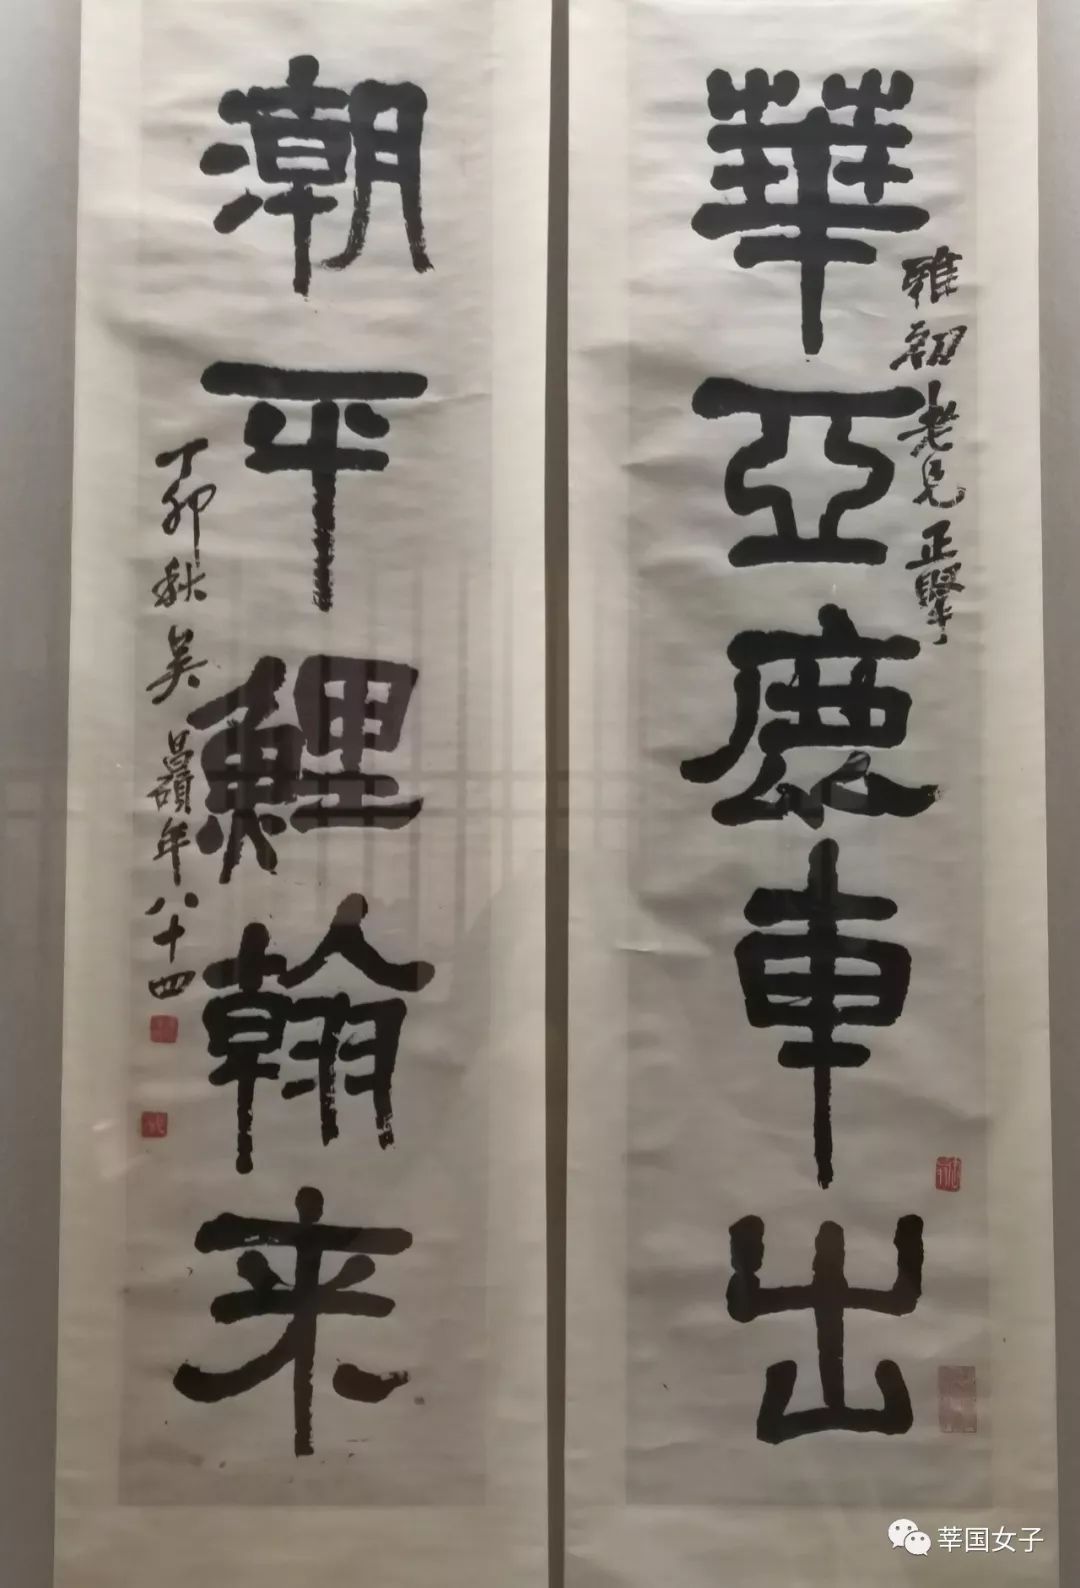 華亞鹿車出
雅初老兄正掔
潮平鯉翰来
丁卯秋吴昌碩年八十四
莘国女子